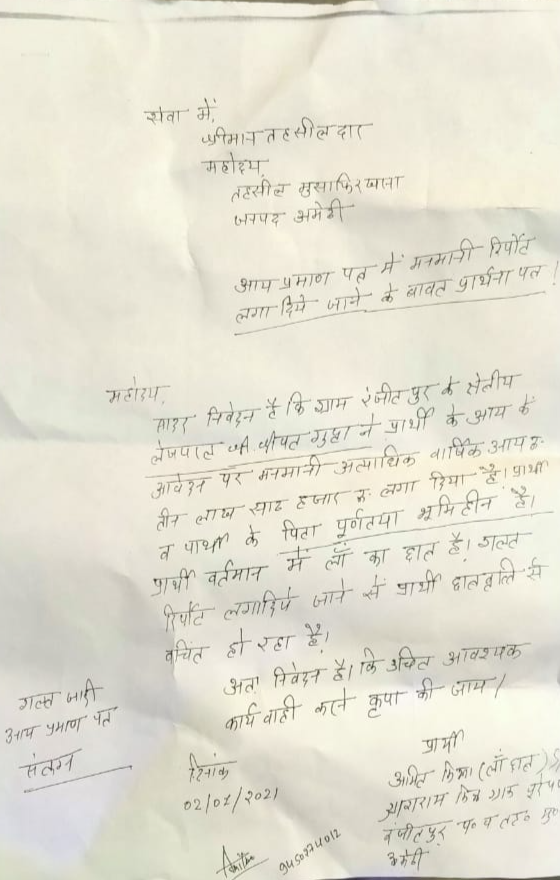 सेवा में,
श्रीमान तहसीलदार
महोदय,
तहसील मुसाफिरखाना
जनपद अमेठी
आय प्रमाण पत्र में मनमानी रिर्पोट
लगा दिये जाने के बावत प्रार्थना पत्र !
महोदय,
सादर निवेदन है कि ग्राम रंजीतपुर के क्षेत्रीय
लेखपाल श्री श्रीपत गुप्ता ने प्रार्थी के आय के
आवेदन पर मनमानी अत्याधिक वार्षिक आय रु॰
तीन लाख साठ हजार रु॰ लगा दिया है। प्रार्थी
व प्रार्थी के पिता पूर्णतया भूमिहीन है।
प्रार्थी वर्तमान में लॉ का छात्र है। गलत
रिर्पोट लगादिये जाने से प्रार्थी छात्रवृत्ति से
वंचित हो रहा है।
अतः निवेदन है। कि उचित आवश्यक
कार्यवाही करने कृपा की जाय।
गलत जारी
आय प्रमाण पत्र
संलग्न
दिनांक
02/01/2021
प्रार्थी
अमित मिश्रा (लॉ छात्र)
आशाराम मिश्र ग्राम
रंजीतपुर पो॰ व तह॰
अमेठी
9450274012